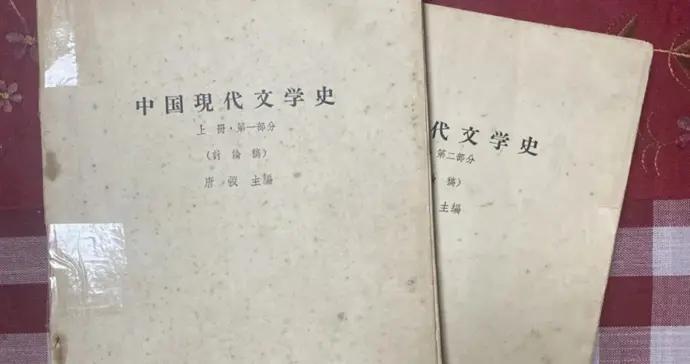 中国现代文学史
上册·第一部分
(討論稿)
唐弢 主編
代文学史
第二部分
稿)
主編